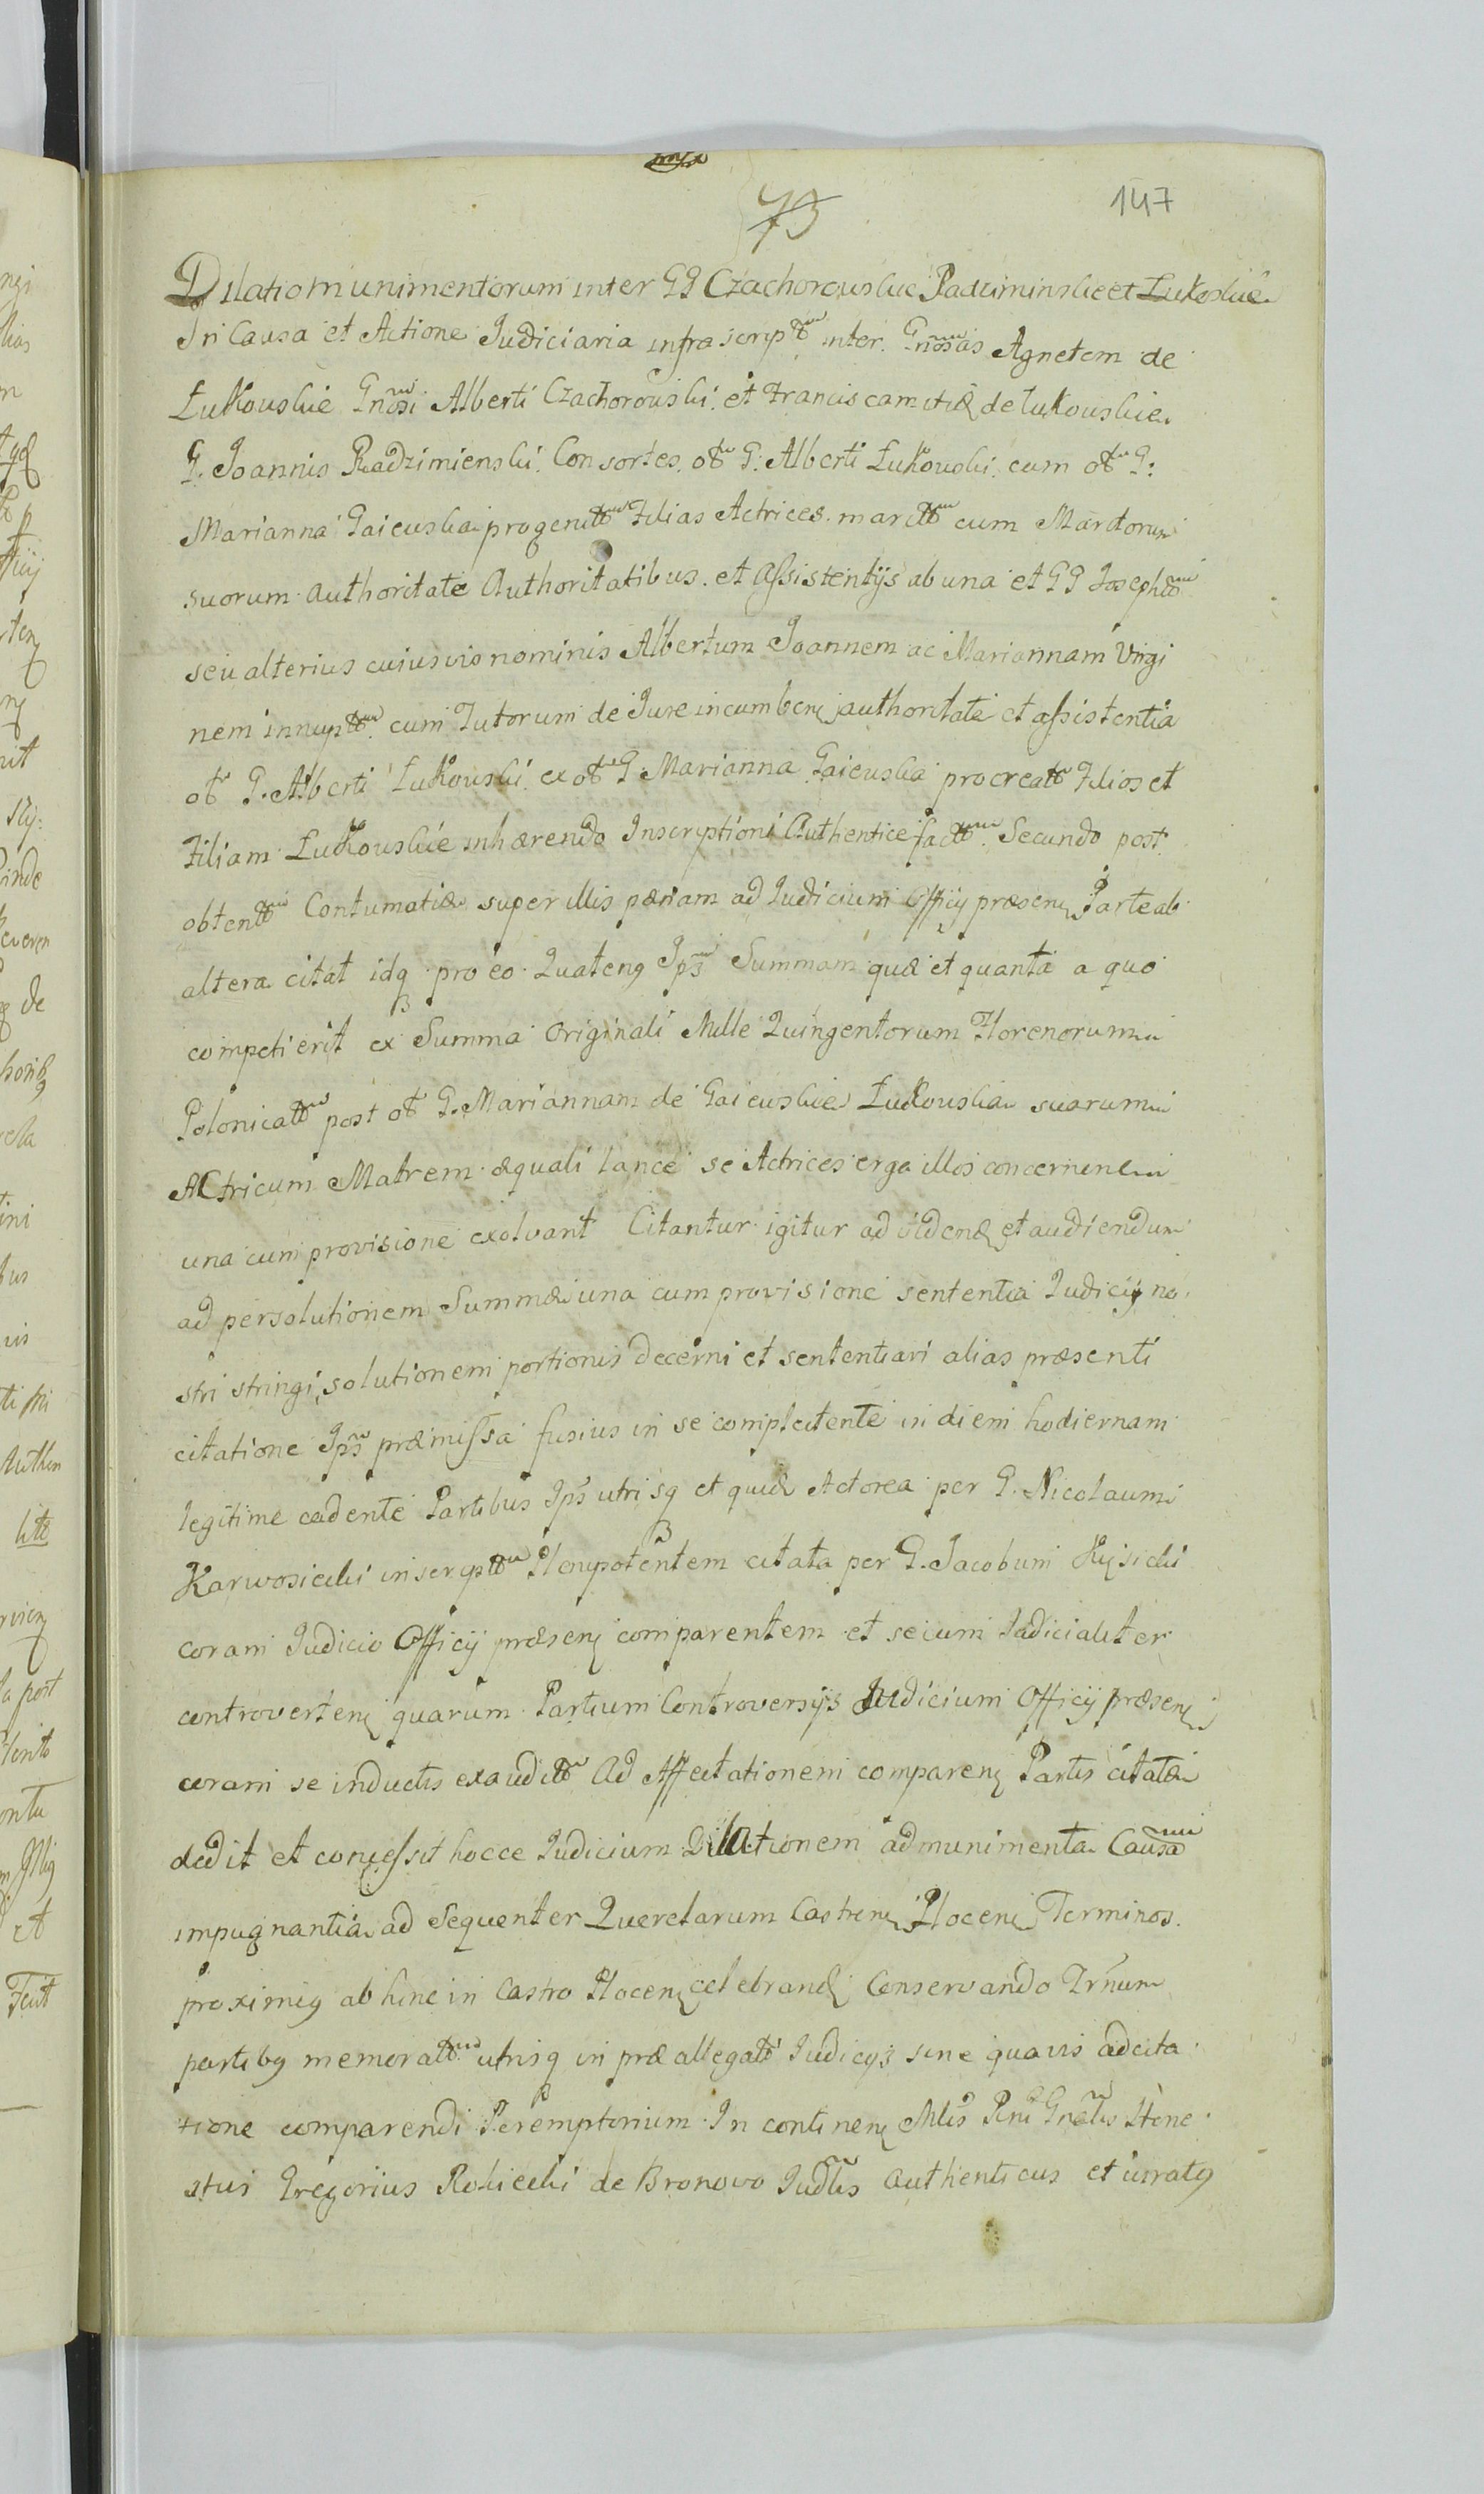 147
73
Dilatio munimentorum inter GG Czachorouskie Radziminskie et Łukoskie
In Causa et Actione Judiciaria infrascriptt inter Gnosas Agnetem de
Łukouskie Gnosi Alberti Czachorouski et Franciscam itid de Łukouskie
G. Joannis Radzimienski Consortes ott G. Alberti Łukouski cum ott G:
Marianna Gaieuska progenitt Filias Actrices maritt cum Maritorum
suorum authoritate Authoritatibus et Assistentijs ab una et GG Josephum
seu alterius cuiusvis nominis Albertum Joannem ac Mariannam Virgi
nem innuptt cum Tutorum de Jure incumben authoritate et assistentia
ott G. Alberti Łukouski ex ott G. Marianna Gaieuska procreatt Filios et
Filiam Łukouskie inhærendo Inscriptioni Authentice factt Secundo post
obtentt Contumatiæ super illis pænam ad Judicium Officij præsen Parte ab
altera citat idq pro eo Quatenq Ips Summam quæ et quanta a quo
competierit ex Summa Originali Mille Quingentorum Florenorum
Polonicatt post ott G. Mariannam de Gaieuskie Łukouska suarum
Actricum Matrem æquali lance se Actrices erga illos concernen
una cum provisione exolvant Citantur igitur ad vidend et audiendum
ad persolutionem Summæ una cum provisione sententia Judicij no
stri stringi, solutionem portionis decerni et sententiari alias præsenti
citatione Ips præmissa fusius in se complectente in diem hodiernam
legitime cadente Partibus Ips utrisq et quid Actorea per G. Nicolaum
Karwosiecki inscriptt Plenipotentem citata per G. Jacobum
coram Judicio Officij præsen comparentem et secum Judicialiter
controverten quarum Partium Controversijs Judicium Officij præsen
coram se inductis exauditt ad Affectationem comparen Partis citatæ
dedit et concessit hocce Judicium Dilationem ad munimenta Causa
impugnantia ad Sequenter Querelarum Castren Plocen Terminos
proximiq ab hinc in Castro Plocen celebrand Conservando Trnum
partibq memoratt utrisq in præallegatt Judicijs sine quavis adcita
tione comparendi Peremptorium In continen Mlis Pni Gnalis Hone
stus Gregorius Rokicki de Bronowo Judlis authenticus et iuratq